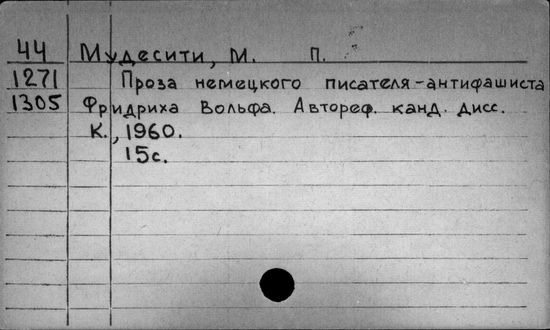 44 Мудесити, М. П.
1271 Проза немецкого писателя-антифашиста
1305 Фридриха Вольфа. Автореф. канд. дисс.
К., 1960.
15с.